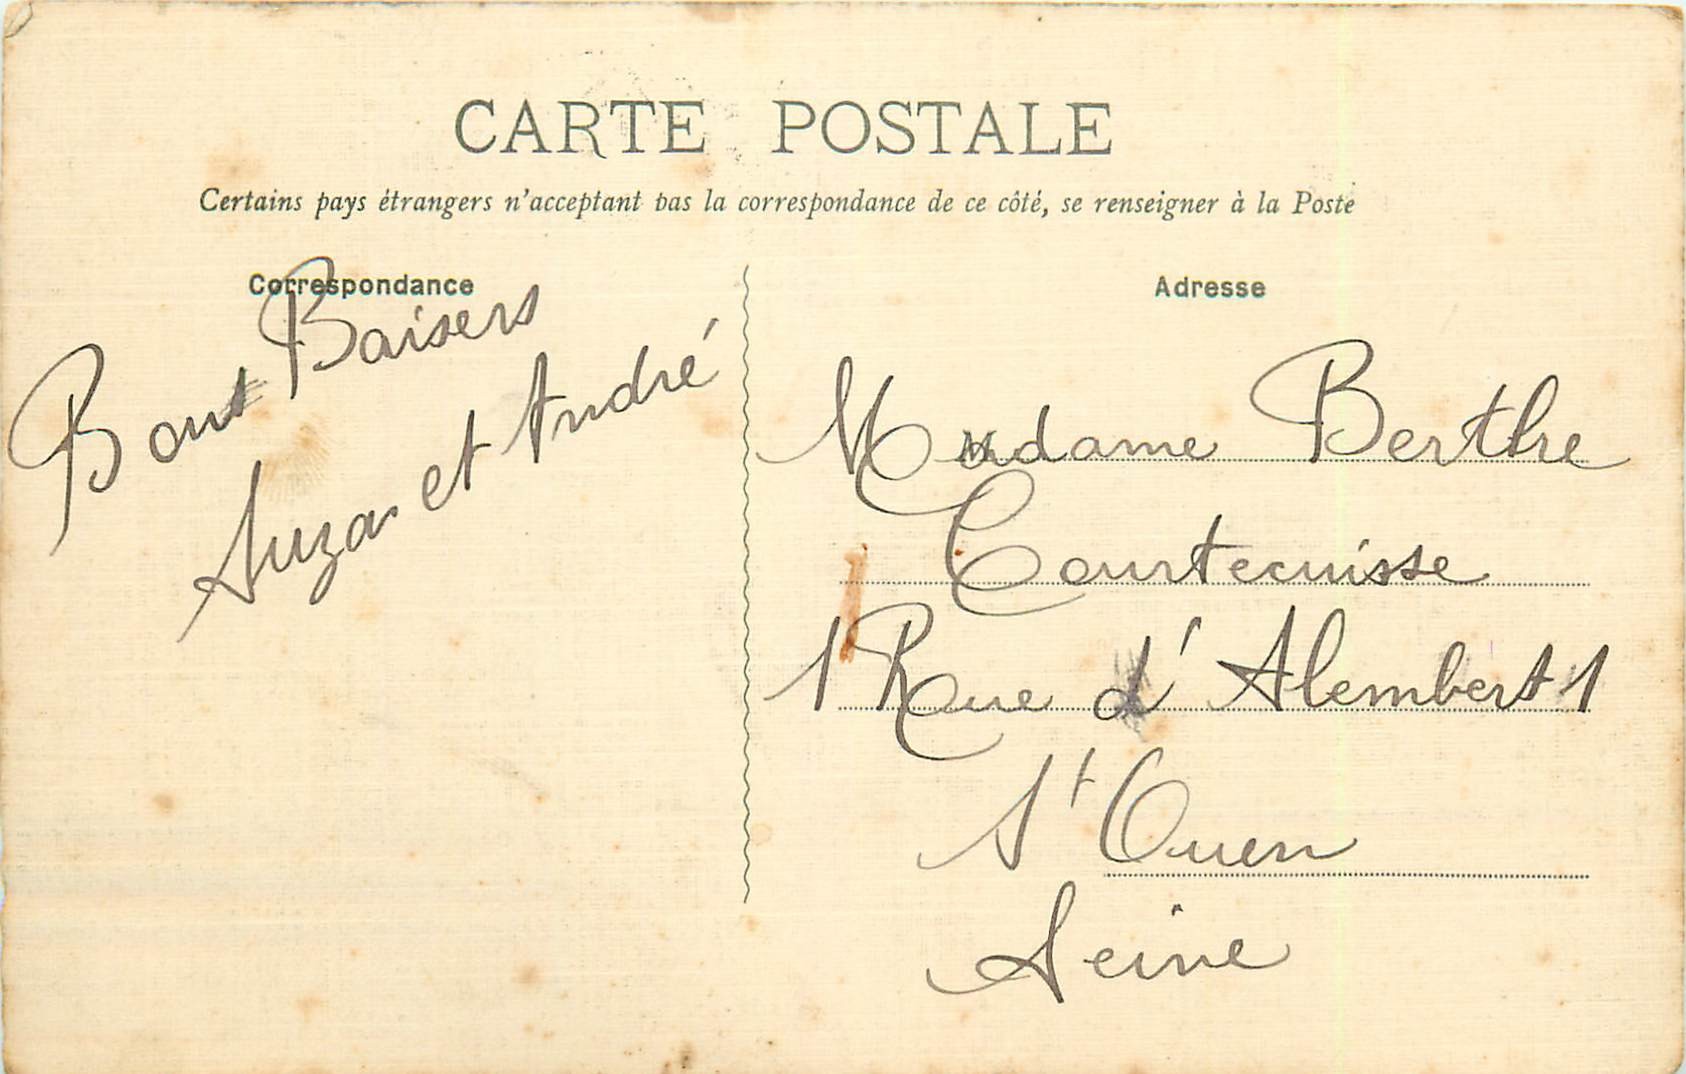 CARTE POSTALE
Certains pays étrangers n'acceptant pas la correspondance de ce côté, se renseigner à la Poste
Correspondance
Bons Baisers
Suzan et André
Adresse
Madame Berthe
Courtecuisse
1 Rue d'Alembert 1
St Ouen
Seine